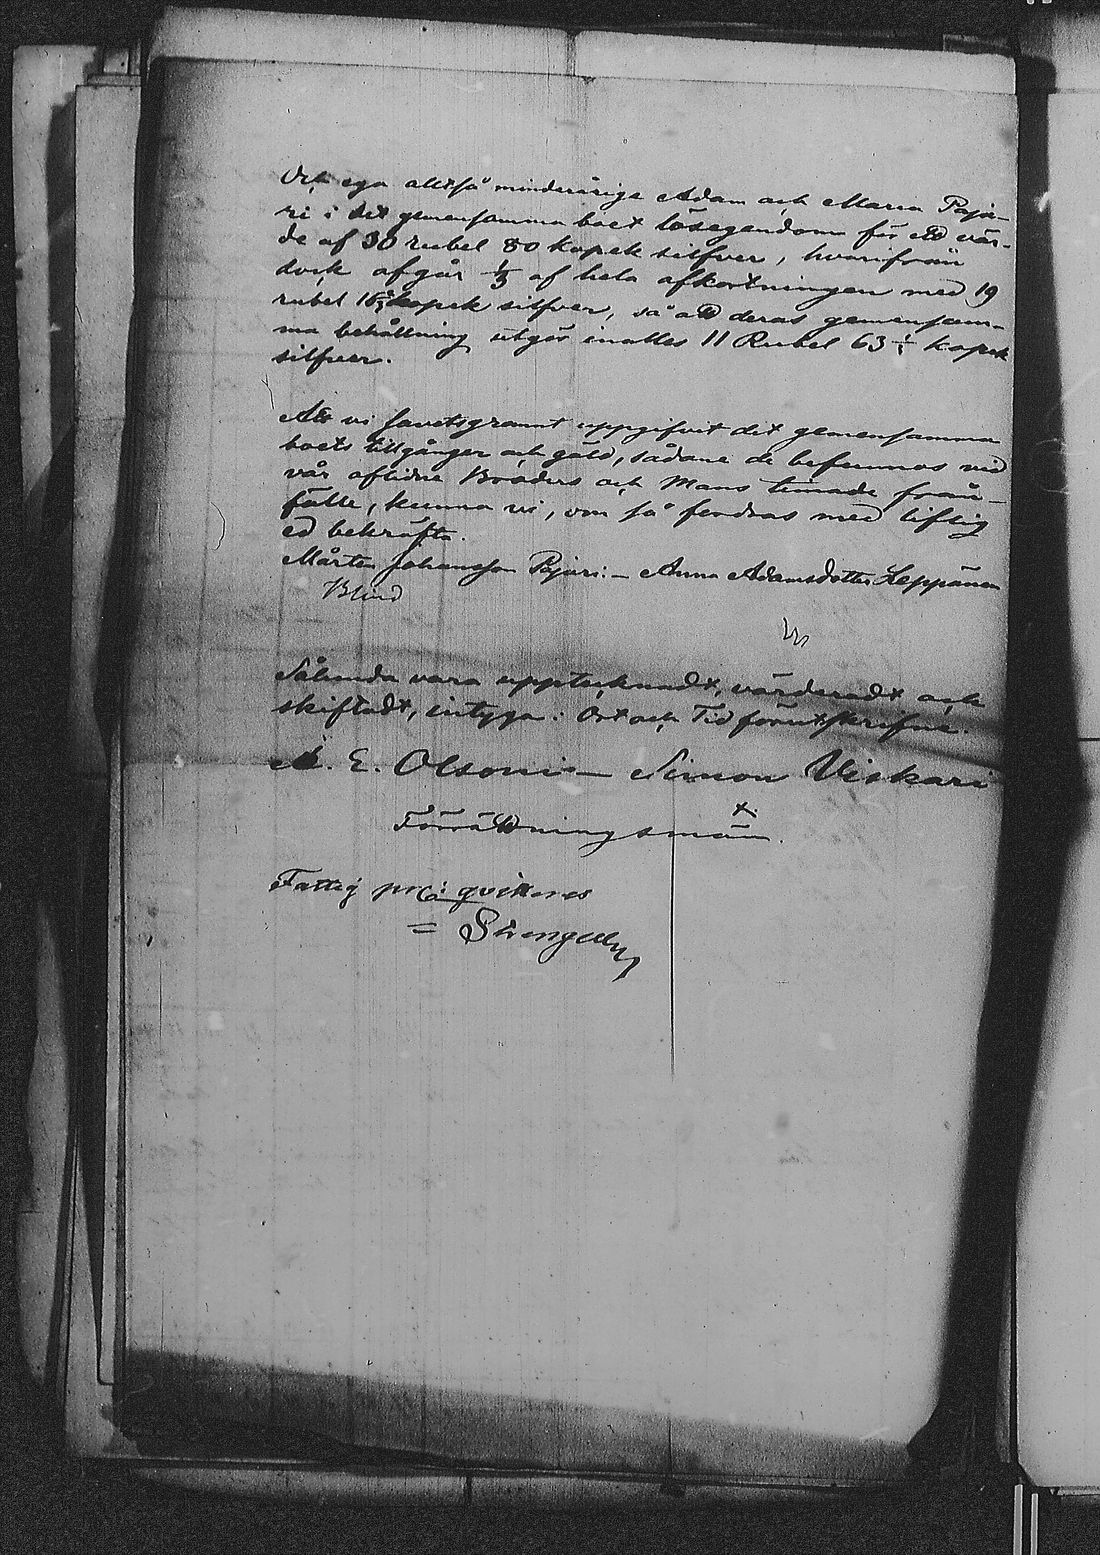 Och ega alltså minderårige Adam och Maria Paja-
ri i det gemensamma boet lösegendom för ett vär-
de af 30 rubel 80 kopek silfver, hvarifrån
dock afgår 1/3 af hela afkortningen med 19
rubel 16 2/3 kopek silfver, så att deras gemensam-
ma behållning utgör inalles 11 Rubel 63 1/3 kopek
silfver.
Att vi savetsgrannt uppgifvit det gemensamma
boets tillgångar och gäld, sådane de befunnos vid
vår aflidne Broders och Mans timade från-
fälle, kunna vi, om så fordras med liflig
ed bekräfta.
Mårten Johansson Pajari. — Anna Adamsdotter Leppänen
Blind
Sålunda vara upptecknadt, värderadt och
skiftadt, intyga: Ort och Tid förutskrifne.
A. E. Olsoni — Simon Viskari
Förrättningsmän.
Fattig pr c: qvitteras
= Strengell